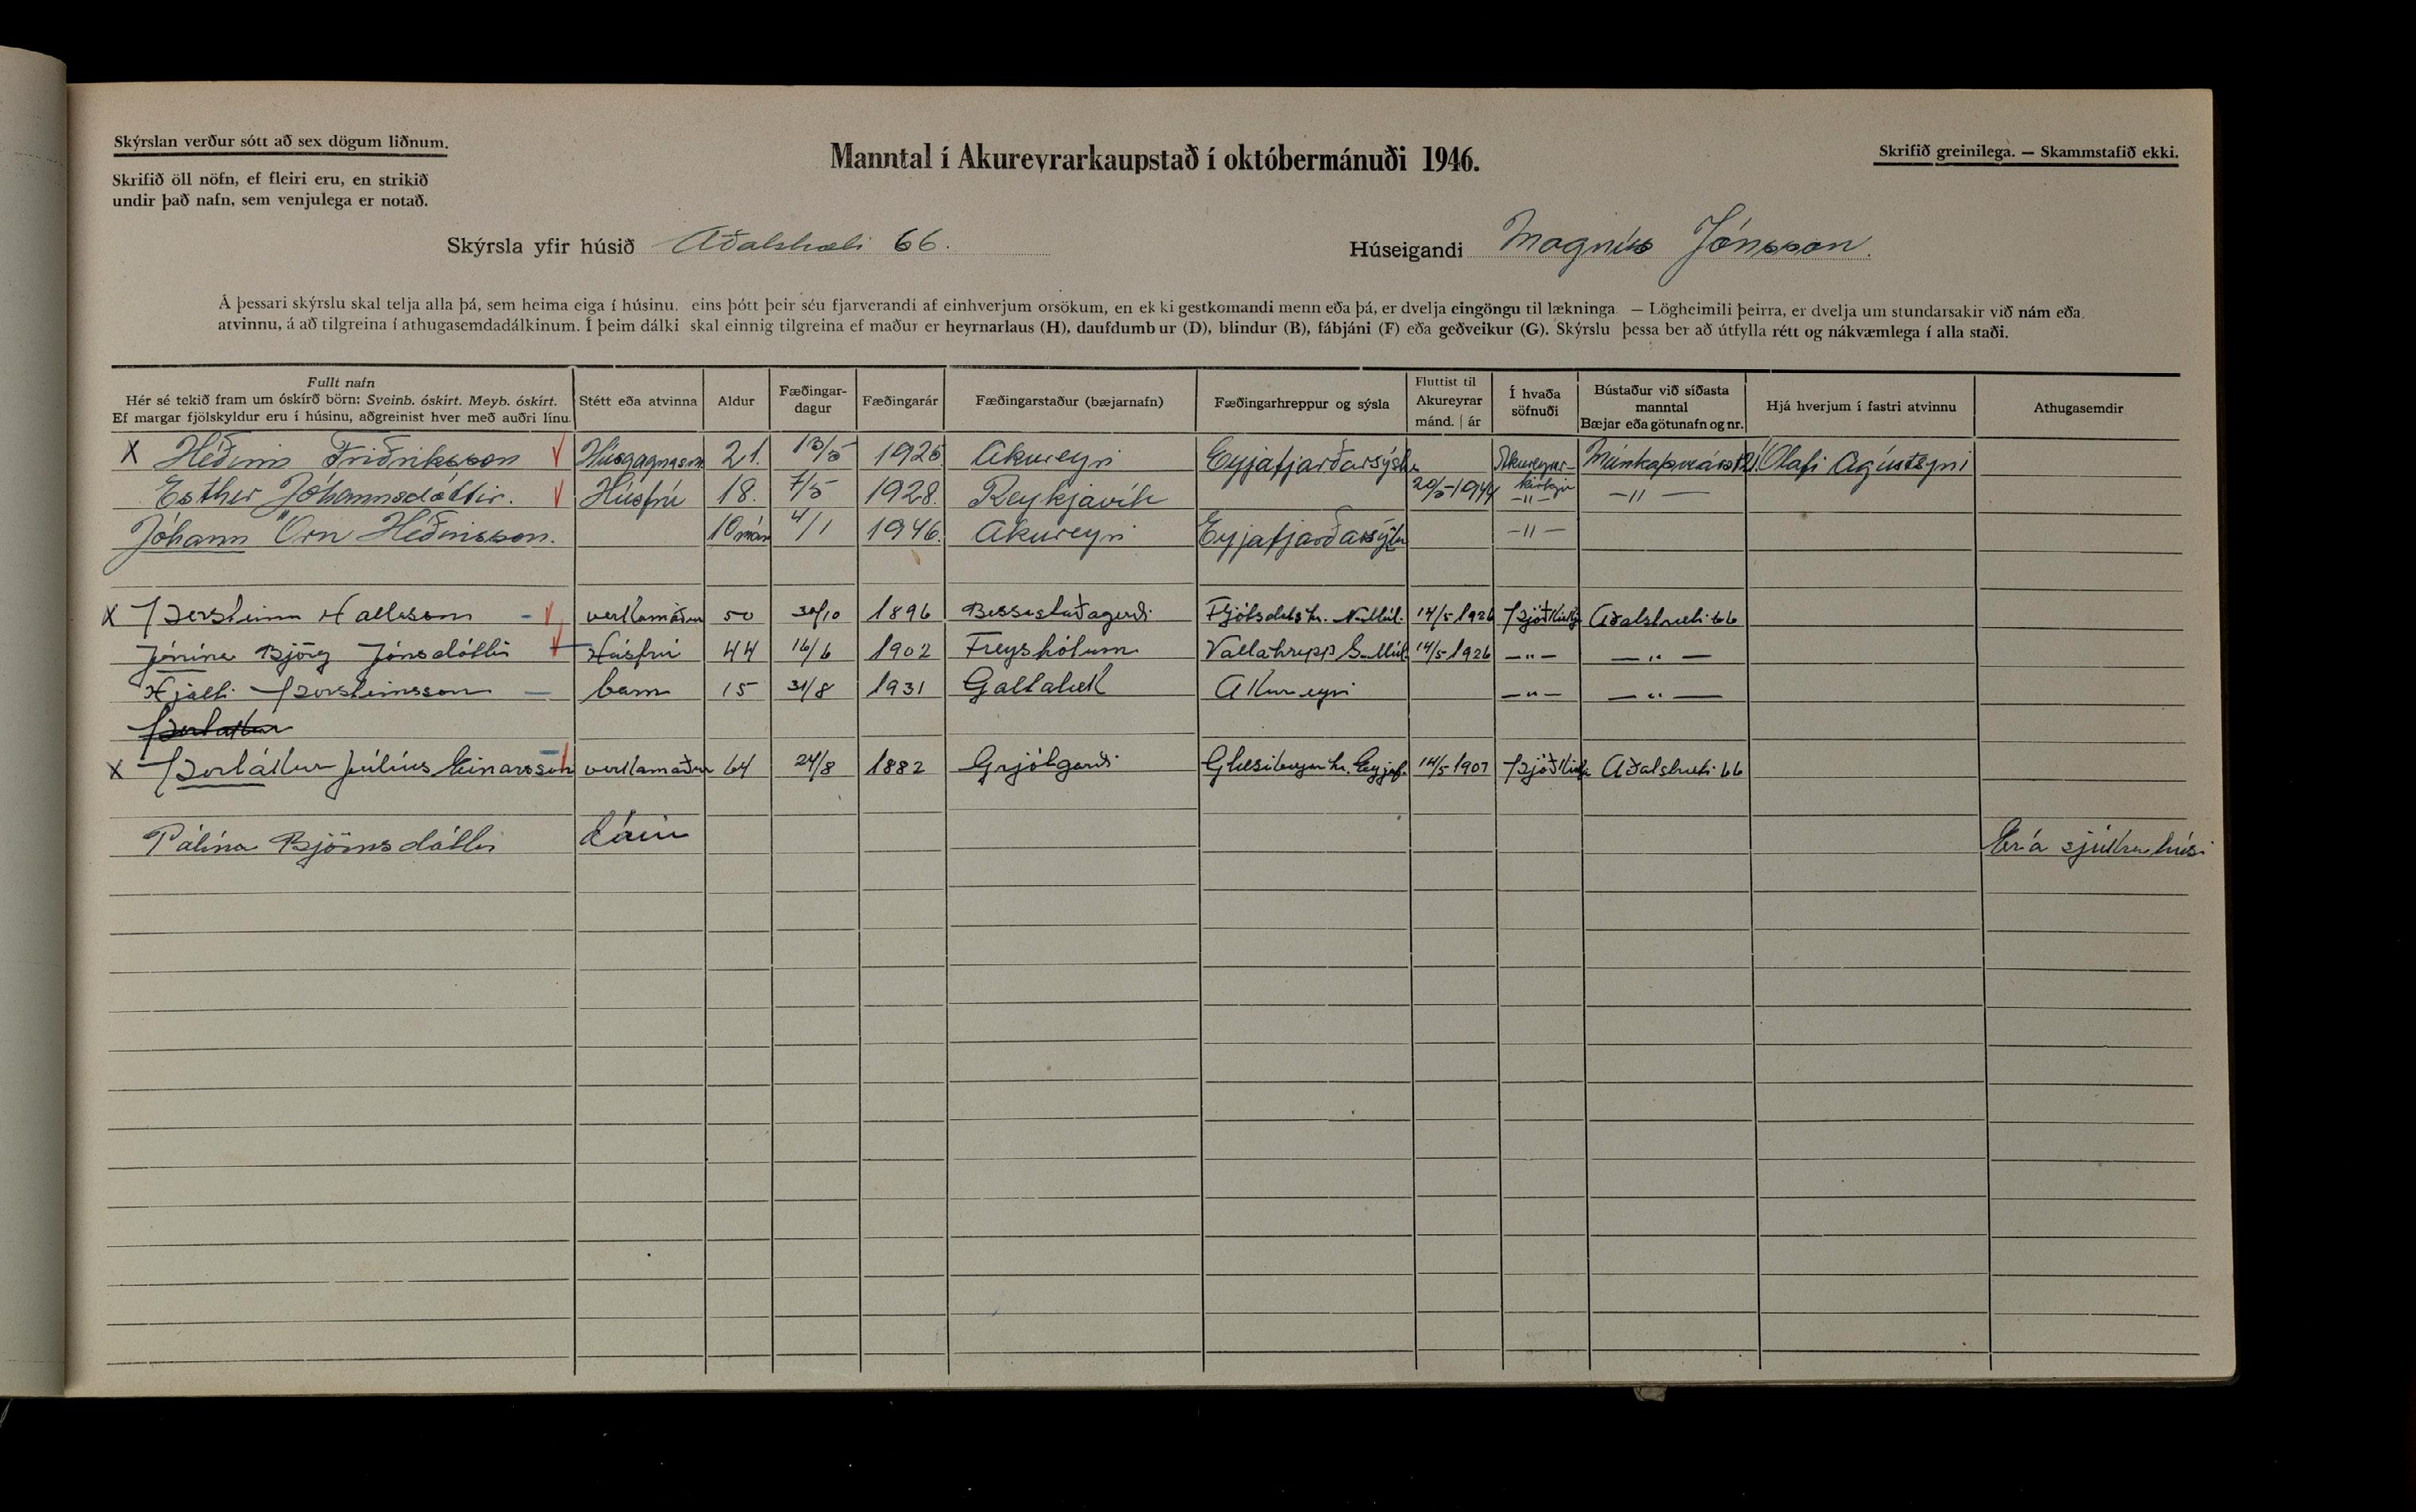 Skýrslan verður sótt að sex dögum liðnum.
Skrifið öll nöfn, ef fleiri eru, en strikið
undir það nafn, sem venjulega er notað.
Manntal í Akureyrarkaupstað í októbermánuði 1946.
Skrifið greinilega. — Skammstafið ekki.
Skýrsla yfir húsið Aðalstræti 66.
Húseigandi Magnús Jónsson.
Á þessari skýrslu skal telja alla þá, sem heima eiga í húsinu, eins þótt þeir séu fjarverandi af einhverjum orsökum, en ekki gestkomandi menn eða þá, er dvelja eingöngu til lækninga. — Lögheimili þeirra, er dvelja um stundarsakir við nám eða
atvinnu, á að tilgreina í athugasemdadálkinum. Í þeim dálki skal einnig tilgreina ef maður er heyrnarlaus (H), daufdumbur (D), blindur (B), fábjáni (F) eða geðveikur (G). Skýrslu þessa ber að útfylla rétt og nákvæmlega í alla staði.
Fullt nafn
Hér sé tekið fram um óskírð börn: Sveinb. óskírt. Meyb. óskírt.
Ef margar fjölskyldur eru í húsinu, aðgreinist hver með auðri línu.
Stétt eða atvinna
Aldur
Fæðingar-
dagur
Fæðingarár
Fæðingarstaður (bæjarnafn)
Fæðingarhreppur og sýsla
Fluttist til
Akureyrar
mánd. | ár
Í hvaða
söfnuði
Bústaður við síðasta
manntal
Bæjar eða götunafn og nr.
Hjá hverjum í fastri atvinnu
Athugasemdir
X Héðinn Friðriksson Húsgagnasm 21. 13/5 1925 Akureyri Eyjafjarðarsýslu Akureyrar- Munkaþverárst 21 Ólafi Ágústsyni
kirkju
Esther Jóhannsdóttir. Húsfrú 18. 7/5 1928. Reykjavík 20/5-1944 -"- -"-
Jóhann Örn Héðinsson. 10 mán 4/1 1946. Akureyri Eyjafjarðarsýslu -"-
X Þorsteinn Hallsson - verkamaður 50 30/10 1896 Bessastaðagerði Fljótsdalshr. N-Múl. 14/5 1926 Þjóðkirkj Aðalstræti 66
Jónína Björg Jónsdóttir Húsfrú 44 16/6 1902 Freyshólum Vallahrepp S-Múl. 14/5 1926 -"- -"-
Hjalti Þorsteinsson - barn 15 31/8 1931 Galtalæk Akureyri -"- -"-
Þorlákur
X Þorlákur Júlíus Einarsson verkamaður 64 24/8 1882 Grjótgerði Glæsibæjarhr. Eyjaf. 14/5 1907 Þjóðkirkja Aðalstræti 66
Pálína Björnsdóttir Dáin Er á sjúkrahúsi